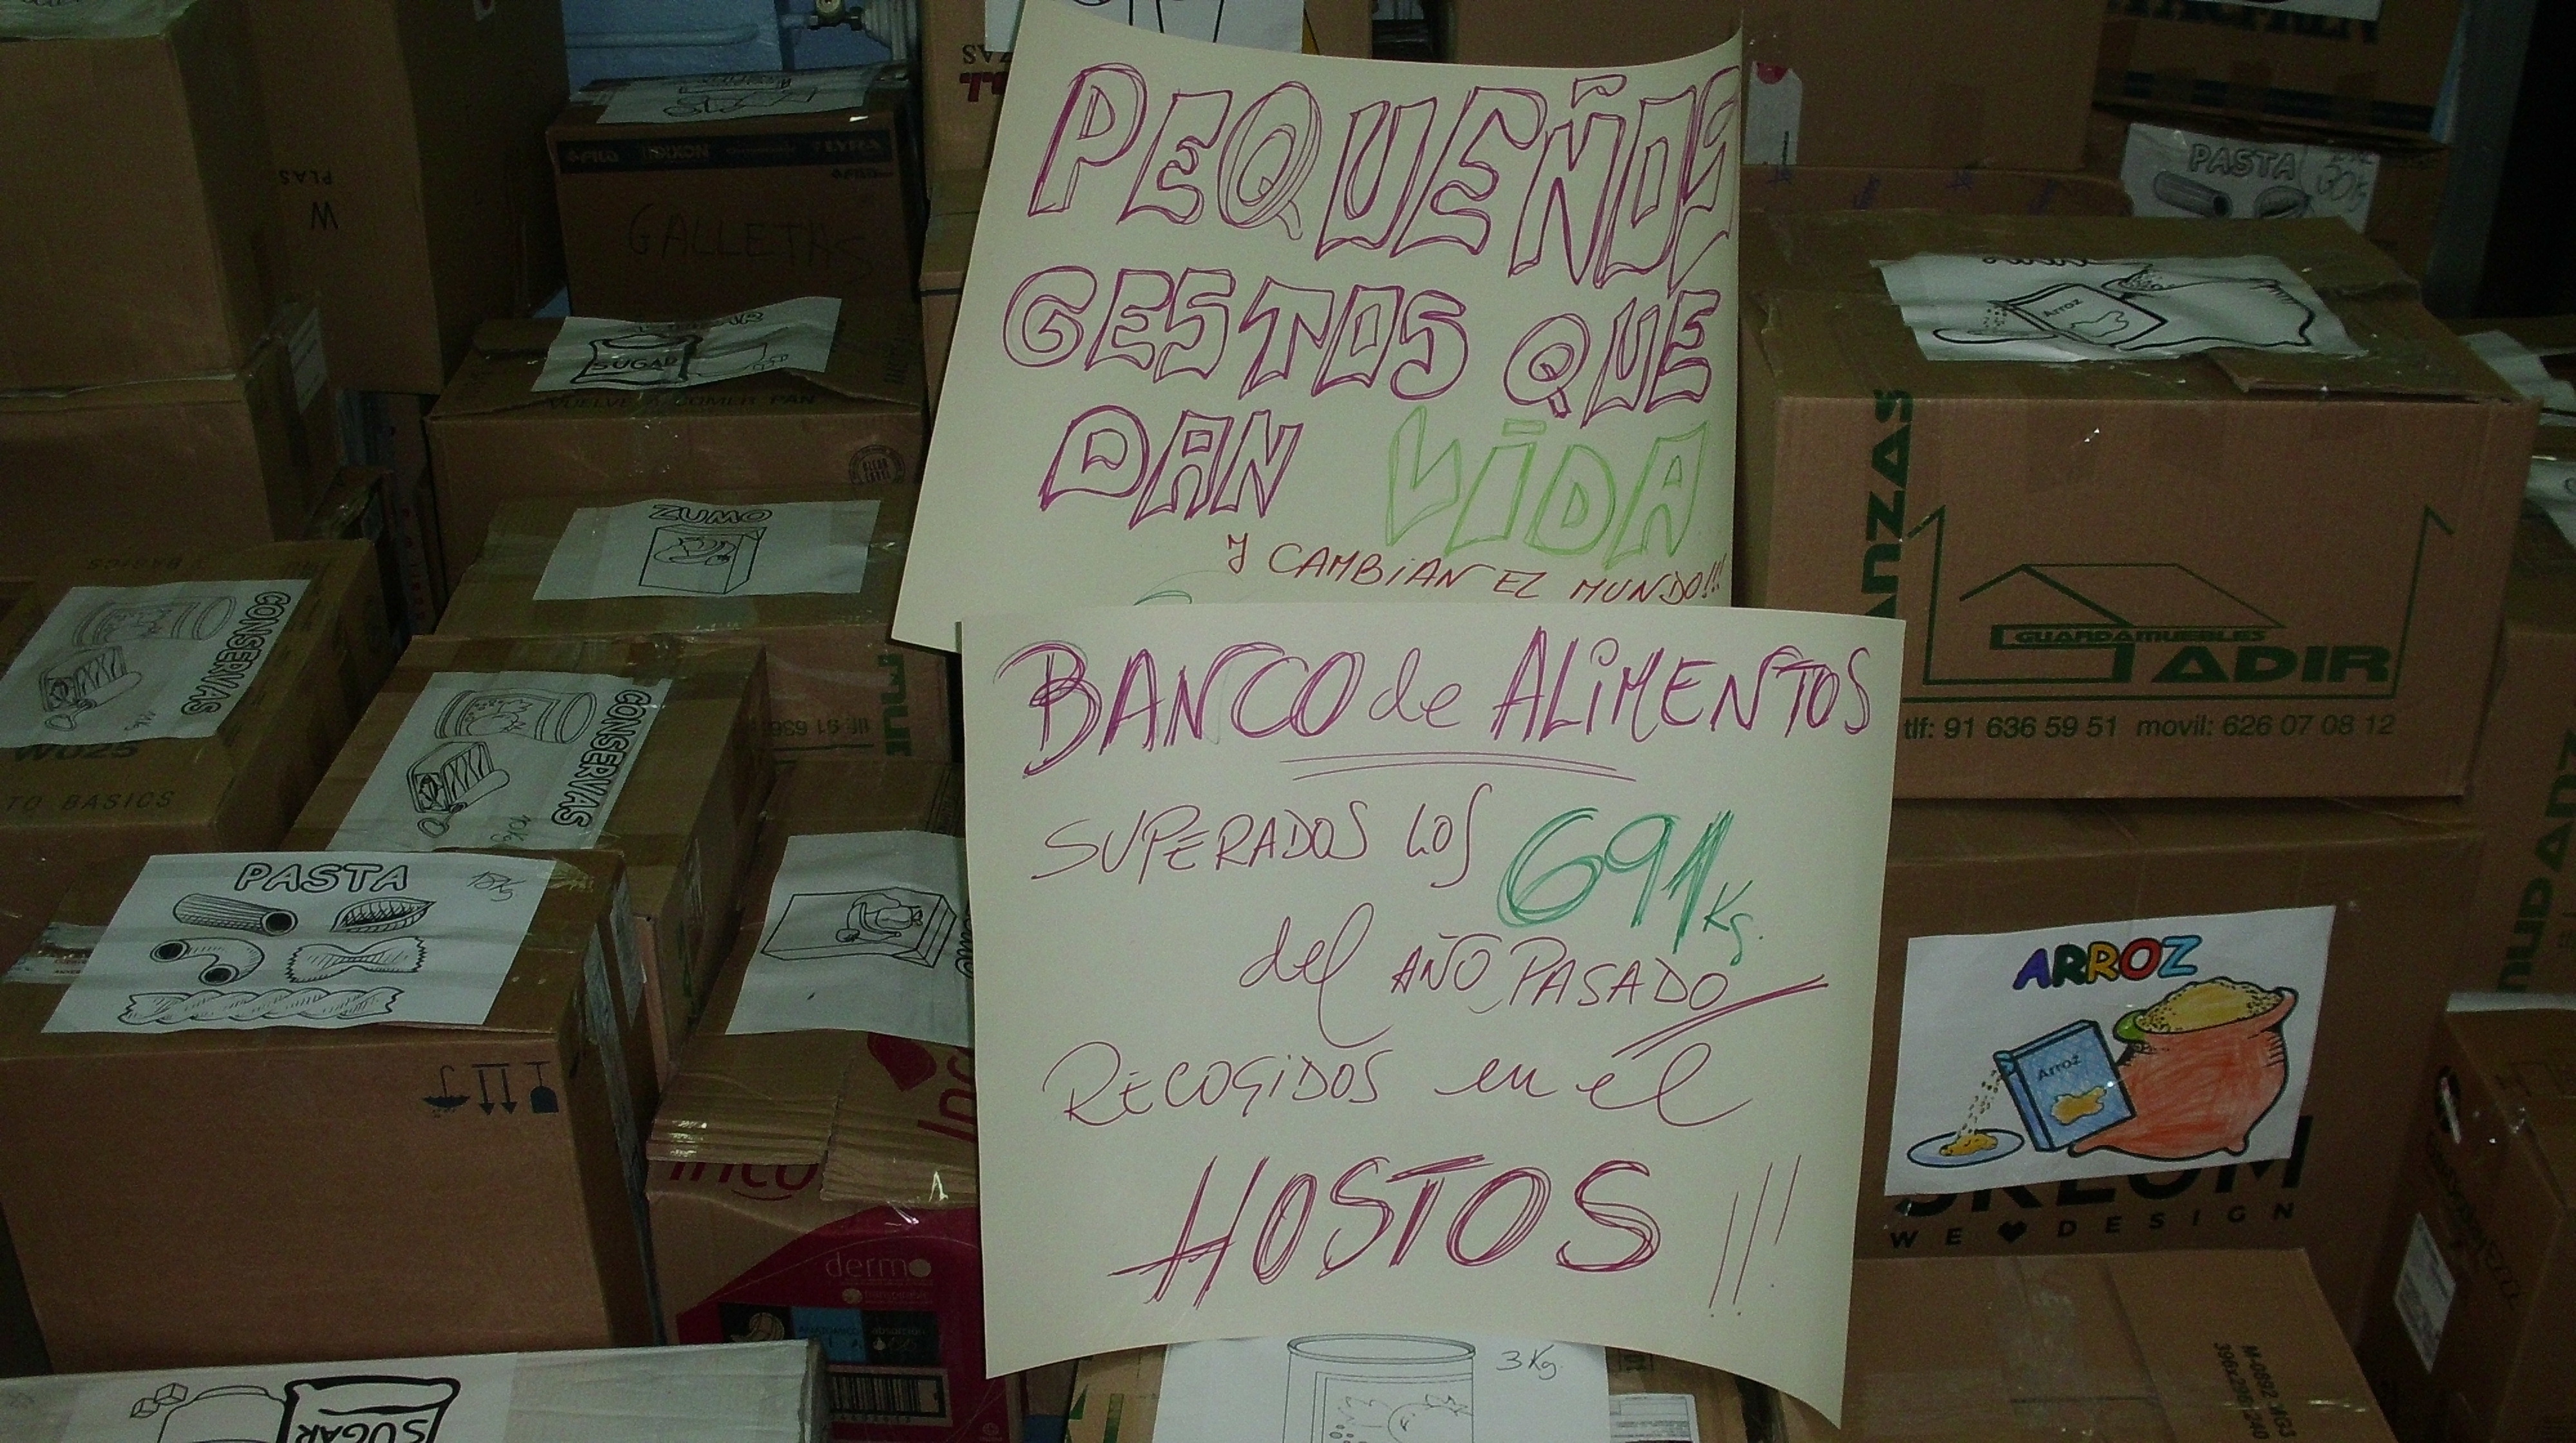 PEQUEÑOS
GESTOS QUE
DAN VIDA
Y CAMBIAN EL MUNDO!!!
BANCO de ALIMENTOS
SUPERADOS LOS 691 Kg.
del AÑO PASADO
RECOGIDOS en el
HOSTOS !!!
GALLETAS
SUGAR
VUELVE A COMER PAN
ZUMO
CONSERVAS
WU25
TO BASICS
CONSERVAS
10 Kg
PASTA
dermo
SUGAR
3 Kg.
PASTA
Arroz
ANZAS
GUARDAMUEBLES
TADIR
tlf: 91 636 59 51 movil: 626 07 08 12
ARROZ
Arroz
SKLUM
WE DESIGN